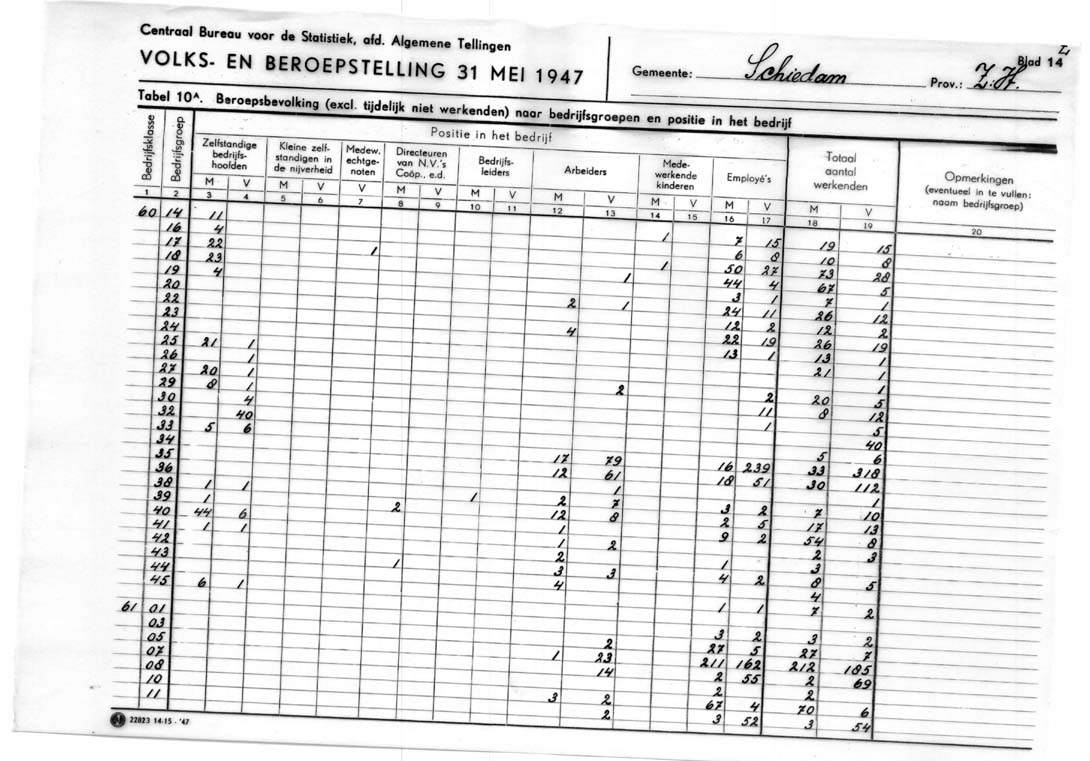 Centraal Bureau voor de Statistiek, afd. Algemene Tellingen
VOLKS- EN BEROEPSTELLING 31 MEI 1947
Gemeente: Schiedam Prov.: Z.H. Blad 14
Tabel 10A. Beroepsbevolking (excl. tijdelijk niet werkenden) naar bedrijfsgroepen en positie in het bedrijf
Bedrijfsklasse
Bedrijfsgroep
Positie in het bedrijf
Zelfstandige bedrijfs-hoofden
Kleine zelf-standigen in de nijverheid
Medew. echtge-noten
Directeuren van N.V.'s Coöp., e.d.
Bedrijfs-leiders
Arbeiders
Mede-werkende kinderen
Employé's
Totaal aantal werkenden
Opmerkingen (eventueel in te vullen: naam bedrijfsgroep)
M V M V V M V M V M V M V M V M V
1 2 3 4 5 6 7 8 9 10 11 12 13 14 15 16 17 18 19 20
60 14 11 1 7 15 19 15
16 4 6 8 10 8
17 22 1 1 50 27 73 28
18 23 1 44 4 67 5
19 4 3 1 7 1
20 2 1 24 11 26 12
22 12 2 12 2
23 4 22 19 26 19
24 13 1 13 1
25 21 1 21 1
26 1 1
27 20 1 2 2 20 5
29 8 1 11 8 12
30 4 1 5
32 40 40
33 5 6 5 6
34 17 79 16 239 33 318
35 12 61 18 51 30 112
36 1 1
38 1 1 1 2 7 3 2 7 10
39 1 2 12 8 2 5 17 13
40 44 6 1 9 2 54 8
41 1 1 1 2 2 3
42 2 1 3
43 1 3 3 4 2 8 5
44 4 4
45 6 1 1 1 7 2
61 01 3 2 3 2
03 2 27 5 27 7
05 1 23 211 162 212 185
07 14 2 55 2 69
08 2 2
10 3 2 67 4 70 6
11 2 3 52 3 54
22823 14-15 - '47